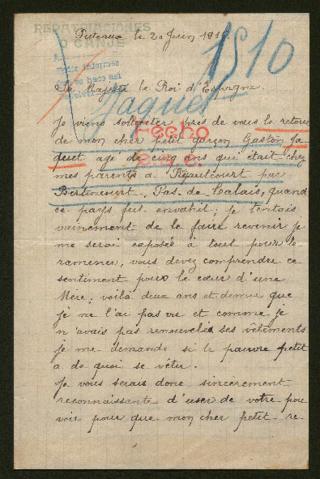 REPATRIACIONES
O CANJE
Puteaux le 20 Juin 191
1510
Sa Majesté le Roi d'Espagne.
Jaquet
Je viens solliciter près de vous le retour
de mon cher petit garçon Gaston Ja
Hecho
quet âgé de cinq ans qui était chez
mes parents à par
Bertincourt, Pas de Calais, quand
ce pays fut envahit; je tentais
vainement de le faire revenir je
me serai exposé à tout pour le
ramener, vous devez comprendre ce
sentiment pour le cœur d'une
Mère; voilà deux ans et demie que
je ne l'ai pas vue et comme je
n'avais pas renouvelés ses vêtements
je me demande si le pauvre petit
a de quoi se vêtir.
Je vous serais donc sincèrement
reconnaissante d'user de votre pou
voir pour que mon cher petit re-